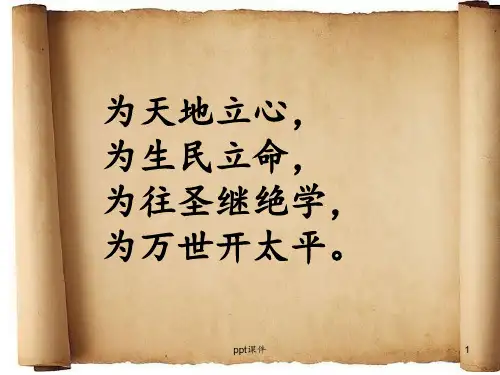 为天地立心，
为生民立命，
为往圣继绝学，
为万世开太平。
ppt课件 1